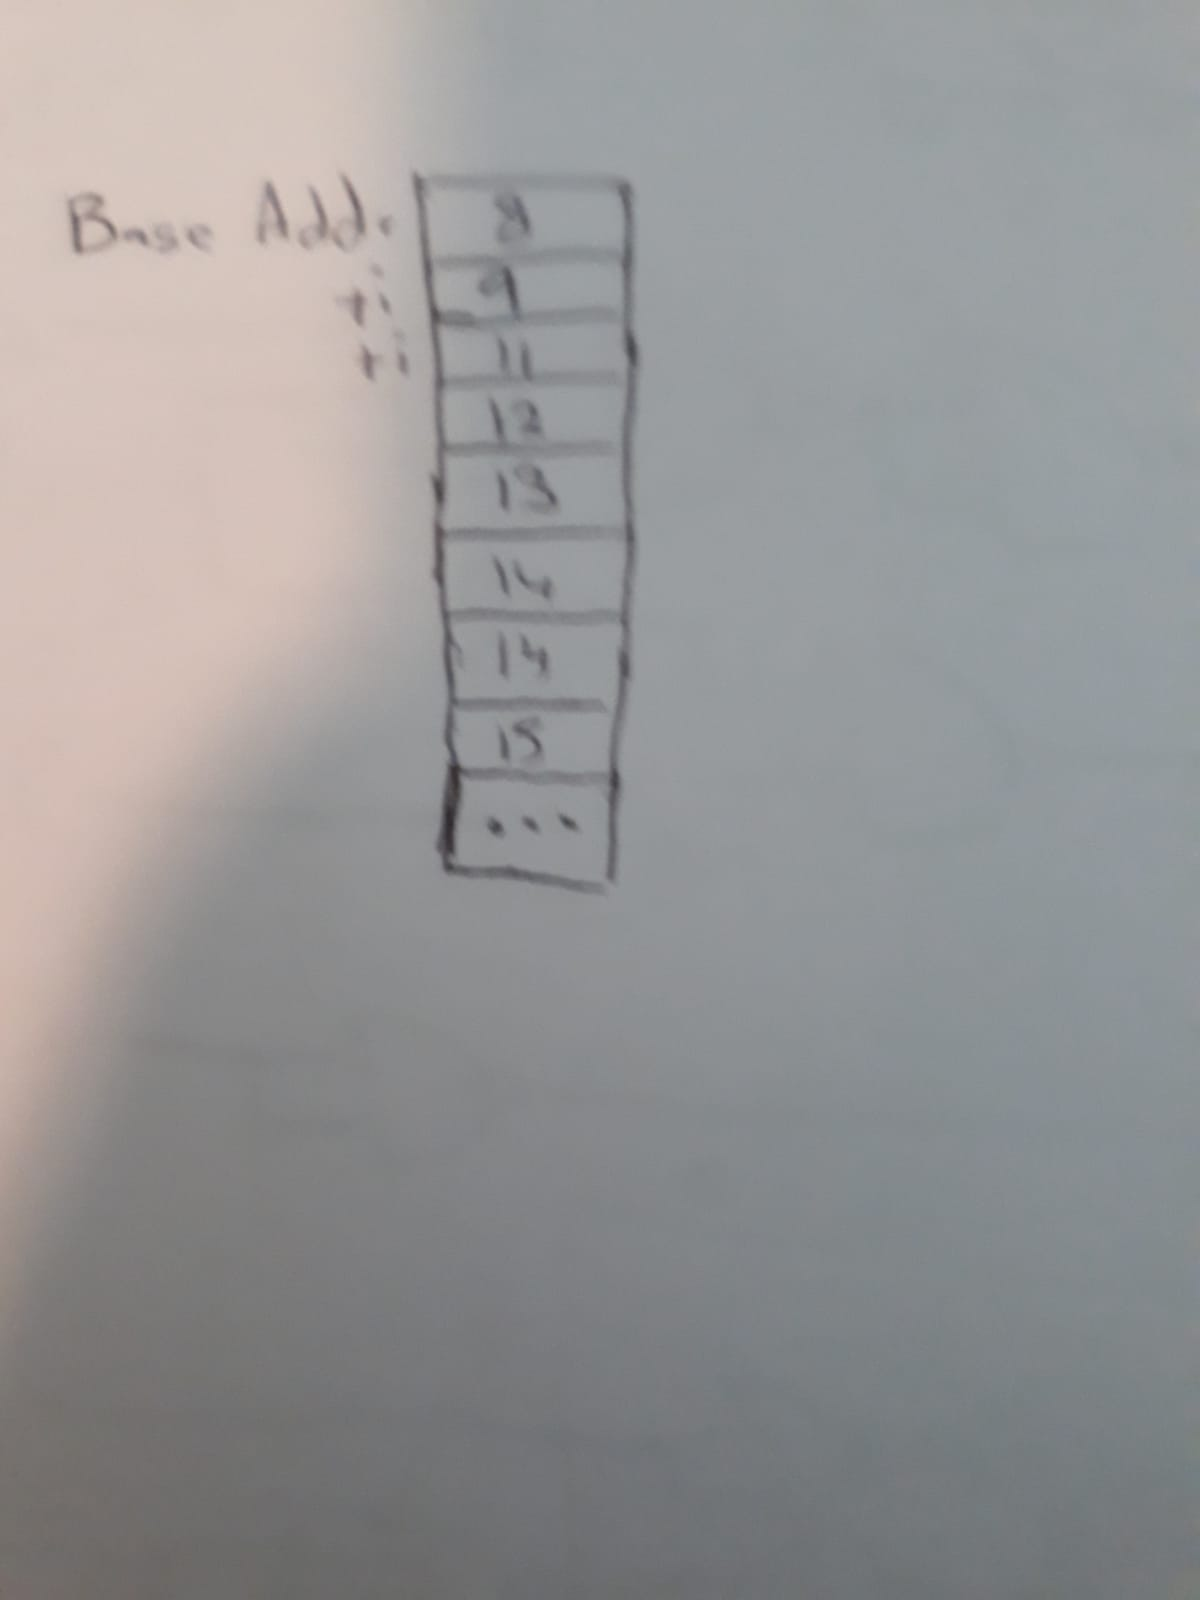 Base Addr 8
+i 9
+i 11
12
13
14
14
15
...